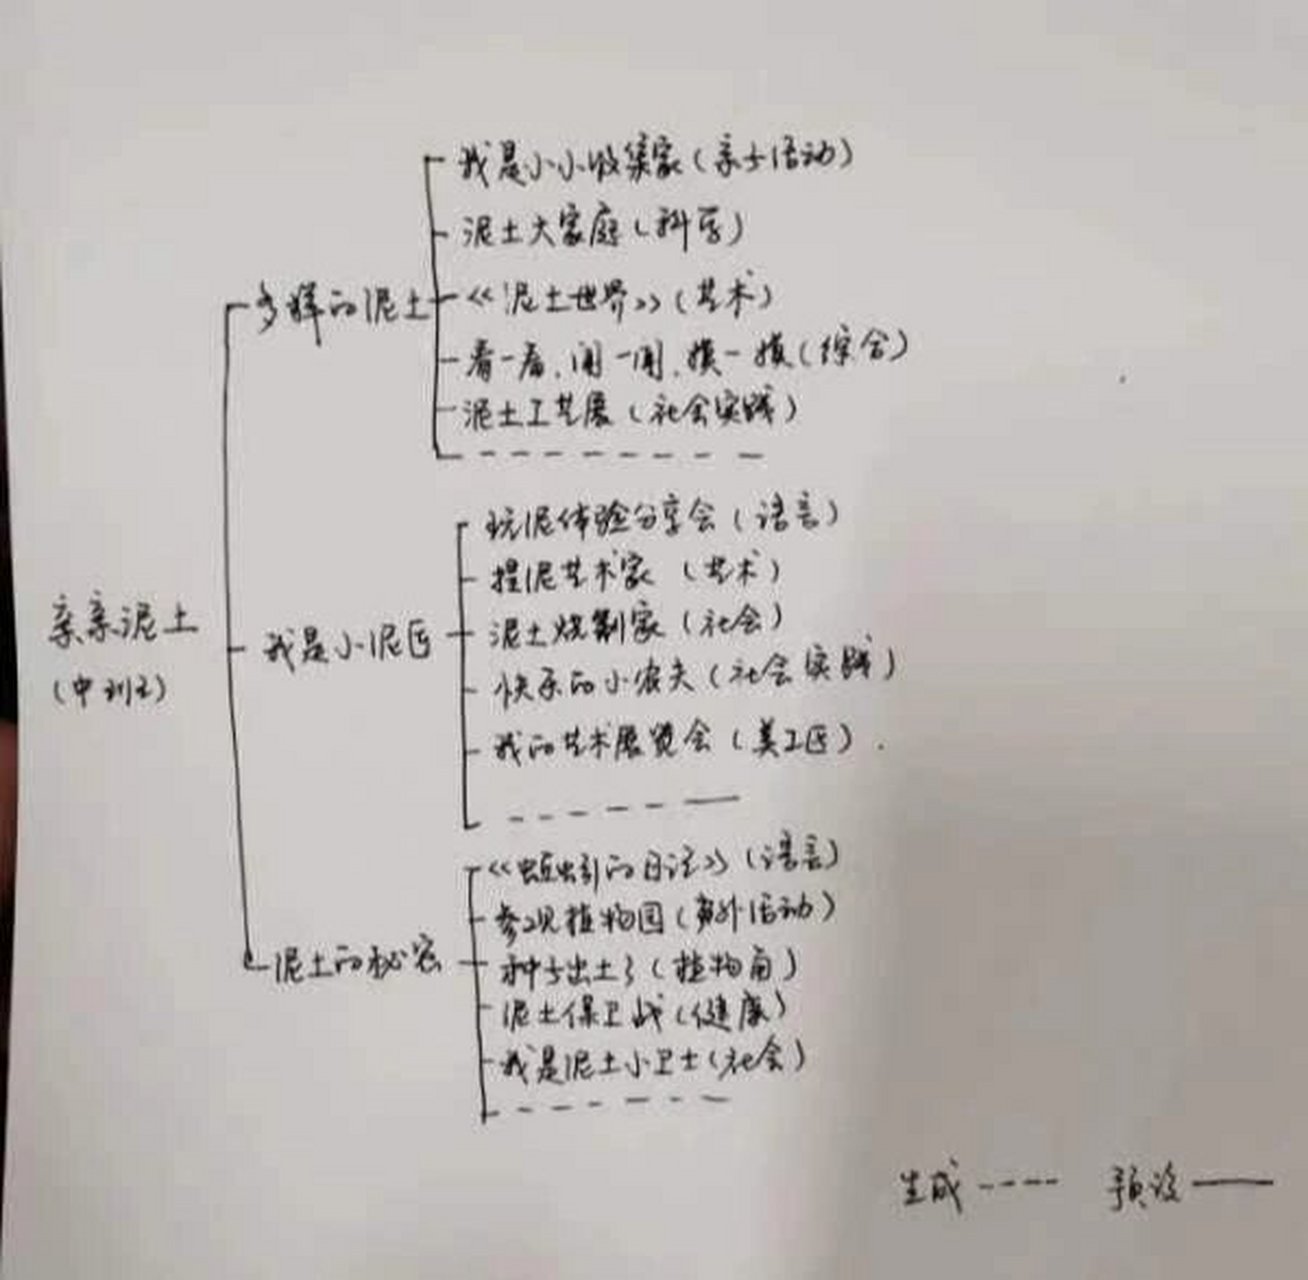 我是小小收集家(亲子活动)
泥土大家庭(科学)
多样的泥土
《泥土世界》(艺术)
看一看、闻一闻、摸一摸(综合)
泥土工艺展(社会实践)
玩泥体验分享会(语言)
捏泥艺术家(艺术)
亲亲泥土
(中班)
我是小泥匠
泥土烧制家(社会)
快乐的小农夫(社会实践)
我的艺术展览会(美工区).
《蚯蚓的日记》(语言)
参观植物园(户外活动)
泥土的秘密
种子出土了(植物角)
泥土保卫战(健康)
我是泥土小卫士(社会)
生成---- 预设——